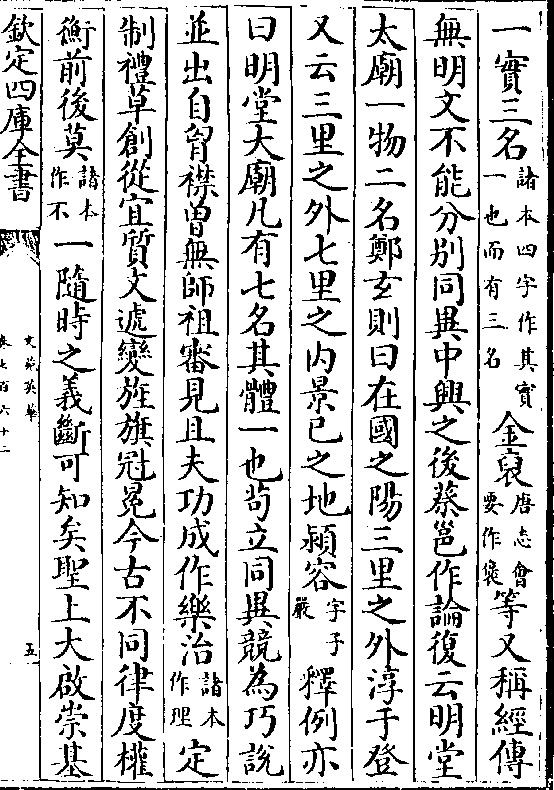 一實三名諸本四字作其實一也而有三名金裒唐志會要作褒等又稱經傳
無明文不能分別同異中興之後蔡邕作論復云明堂
太廟一物二名鄭玄則曰在國之陽三里之外淳于登
又云三里之外七里之内景巳之地潁容字子嚴釋例亦
曰明堂大廟凡有七名其體一也茍立同異競為巧說
並出自胷襟曾無師祖審見且夫功成作樂治諸本作理定
制禮草創從宜質文遞變旌旗冠冕今古不同律度權
衡前後莫諸本作不一隨時之義斷可知矣聖上大啟崇基
欽定四庫全書
文苑英華
卷七百六十二
五